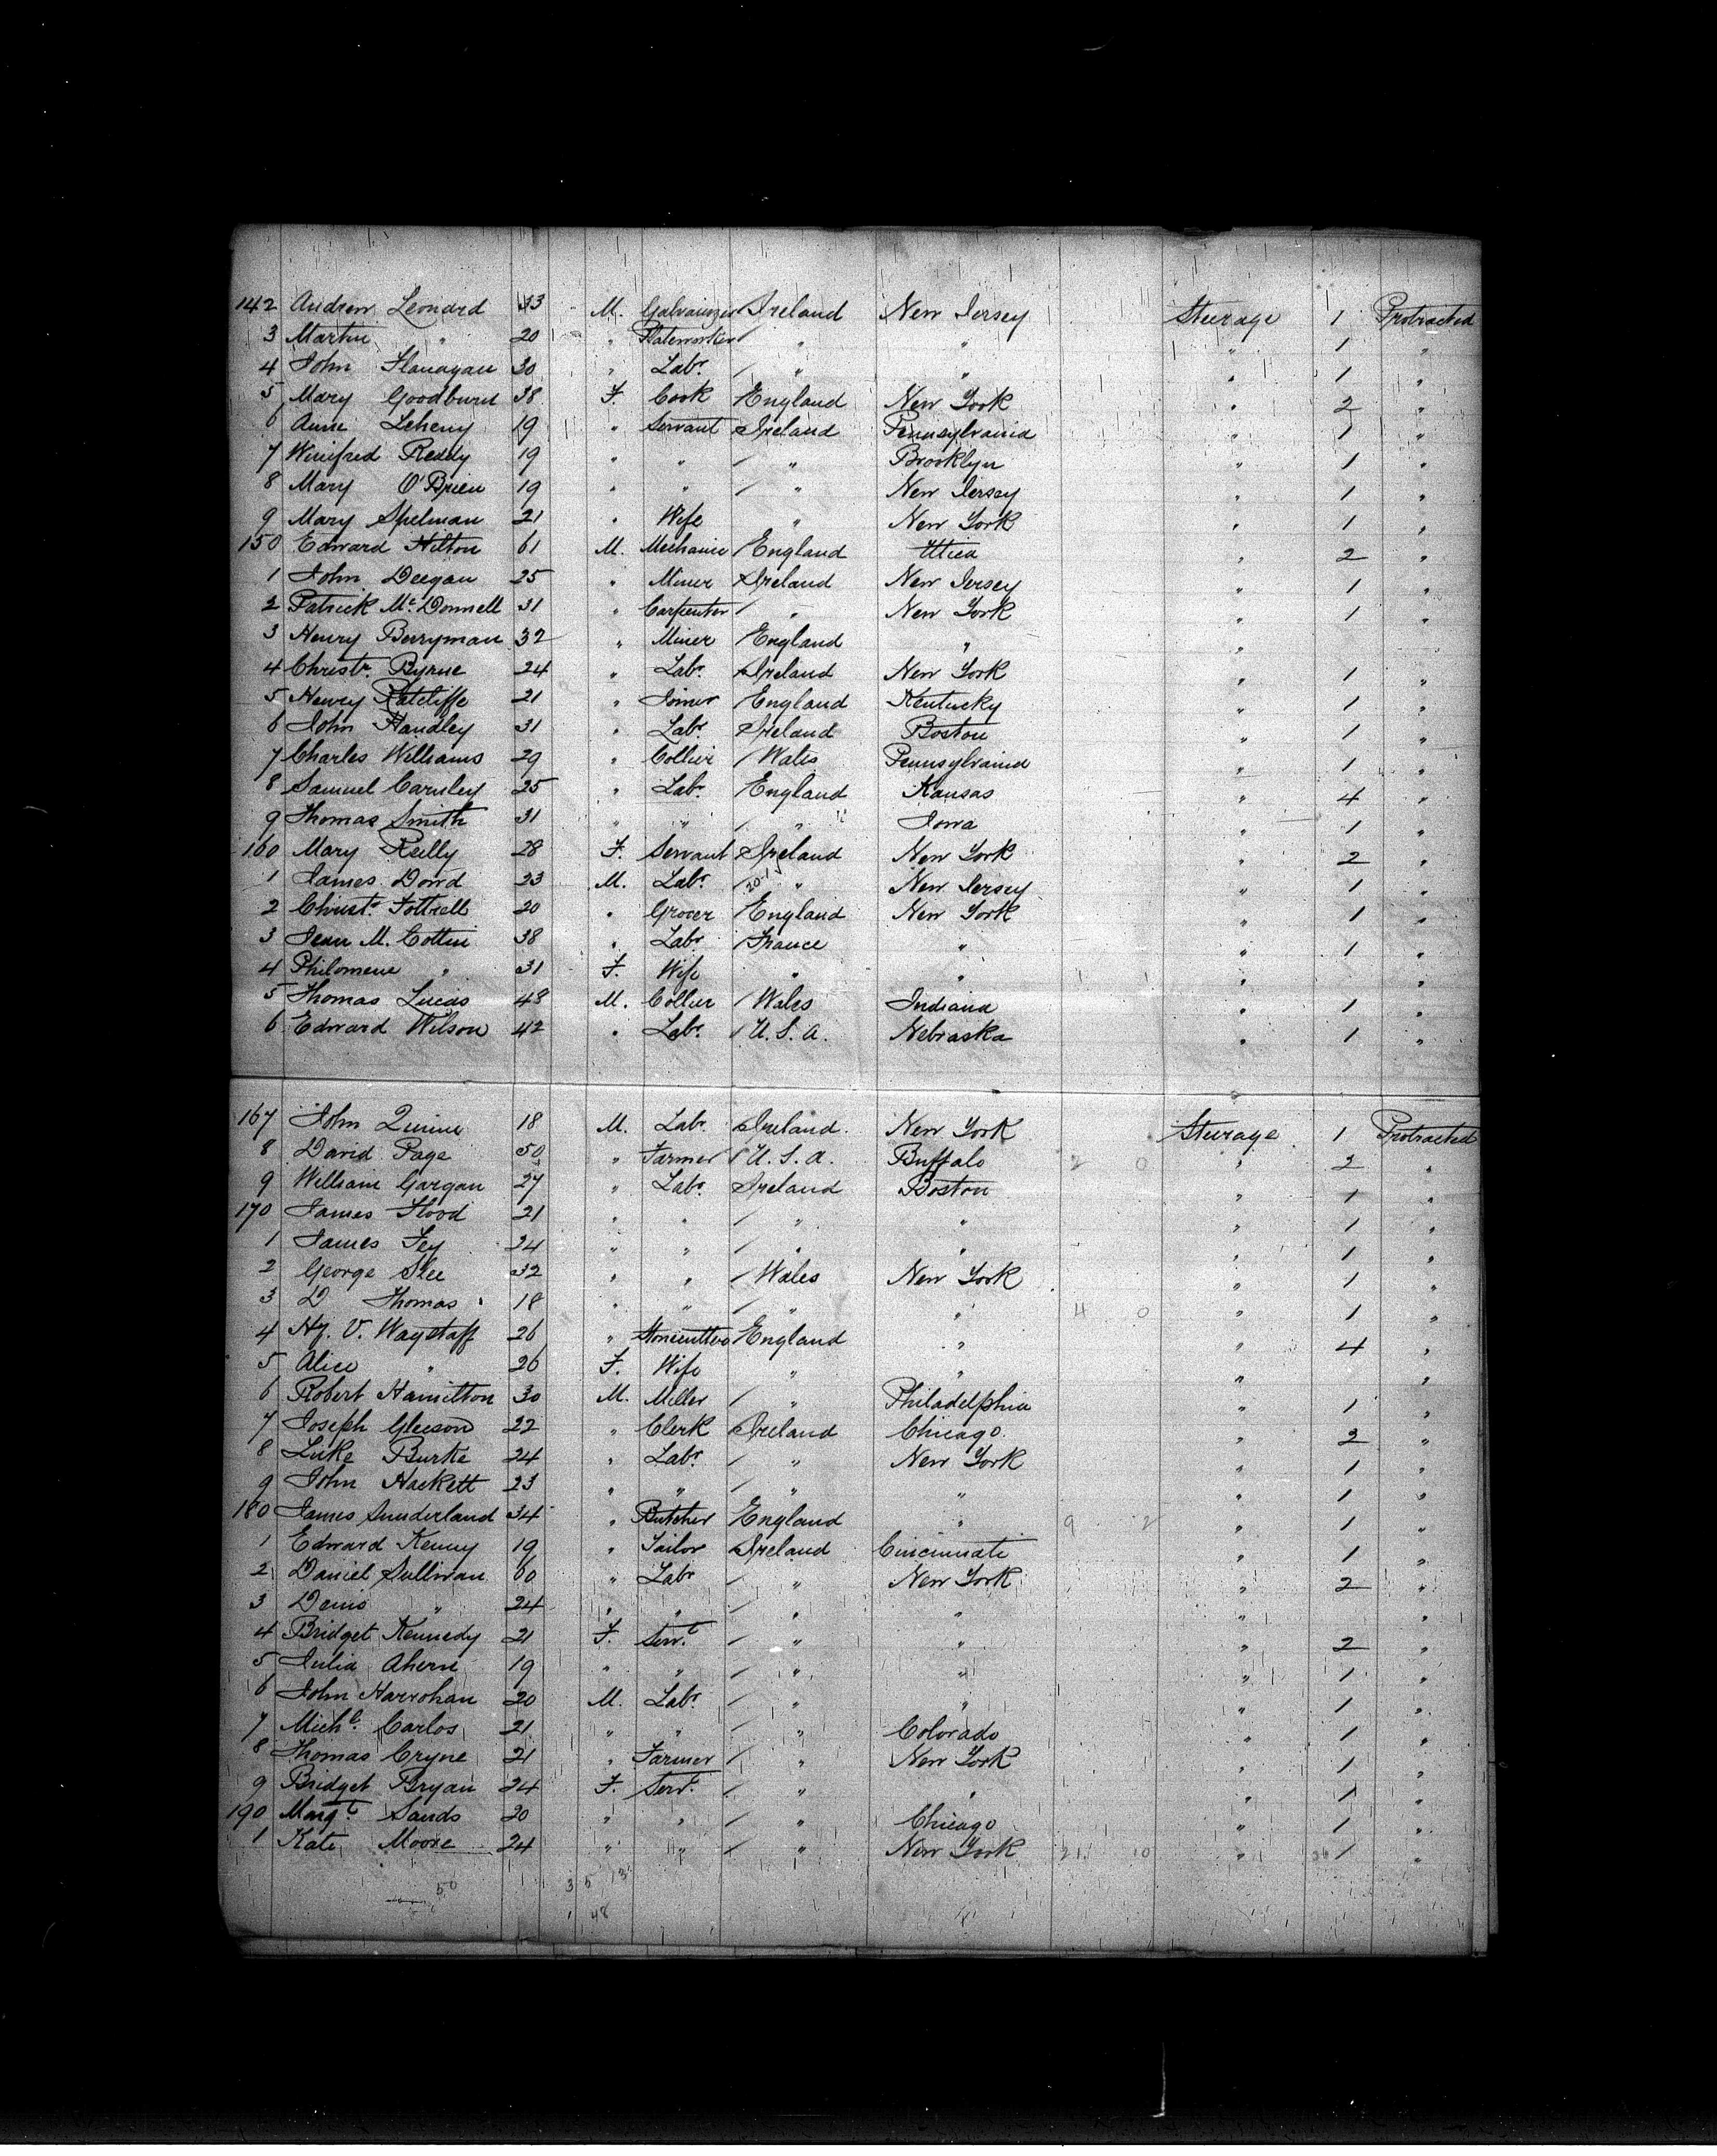 142 Andrew Leonard 33 M. Galvanizer Ireland New Jersey Steerage 1 Protracted
3 Martin " 20 " Plateworker / " " " 1 "
4 John Flanagan 30 " Labr / " " " 1 "
5 Mary Goodburn 38 F. Cook England New York " 2 "
6 Anne Leheny 19 " Servant Ireland Pennsylvania " 1 "
7 Winifred Reddy 19 " " / " Brooklyn " 1 "
8 Mary O'Brien 19 " " / " New Jersey " 1 "
9 Mary Spelman 21 " Wife " New York " 1 "
150 Edward Hilton 61 M. Mechanic / England Utica " 2 "
1 John Deegan 25 " Miner Ireland New Jersey " 1 "
2 Patrick Mc Donnell 31 " Carpenter / " New York " 1 "
3 Henry Berryman 32 " Miner England " " "
4 Christr Byrne 24 " Labr Ireland New York " 1 "
5 Henry Ratcliffe 21 " Joiner England Kentucky " 1 "
6 John Handley 31 " Labr Ireland Boston " 1 "
7 Charles Williams 29 " Collier / Wales Pennsylvania " 1 "
8 Samuel Carnley 25 " Labr England Kansas " 4 "
9 Thomas Smith 31 " " / " Iowa " 1 "
160 Mary Reilly 28 F. Servant Ireland New York " 2 "
1 James Dowd 23 M. Labr / " New Jersey " 1 "
2 Christr Fottrell 20 " Grocer England New York " 1 "
3 Jean M. Cottin 38 " Labr / France " " 1 "
4 Philomene " 31 F. Wife " " " "
5 Thomas Lucas 48 M. Collier / Wales Indiana " 1 "
6 Edward Wilson 42 " Labr / U.S.A. Nebraska " 1 "
167 John Quinn 18 M. Labr Ireland New York Steerage 1 Protracted
8 David Page 50 " Farmer / U.S.A. Buffalo 2 0 " 2 "
9 William Gargan 27 " Labr Ireland Boston " 1 "
170 James Flood 21 " " / " " " 1 "
1 James Fey 24 " " / " " " 1 "
2 George Slee 32 " " / Wales New York " 1 "
3 D Thomas 18 " " / " " 4 0 " 1 "
4 Hy. V. Wagstaff 26 " Stonecutter England " " 4 "
5 Alice " 26 F. Wife " " " "
6 Robert Hamilton 30 M. Miller / " Philadelphia " 1 "
7 Joseph Gleeson 22 " Clerk Ireland Chicago " 2 "
8 Luke Burke 24 " Labr / " New York " 1 "
9 John Hackett 23 " " / " " " 1 "
180 James Sunderland 34 " Butcher England " 9 2 " 1 "
1 Edward Kenny 19 " Tailor Ireland Cincinnati " 1 "
2 Daniel Sullivan 60 " Labr / " New York " 2 "
3 Denis " 24 " " / " " " "
4 Bridget Kennedy 21 F. Servt / " " " 2 "
5 Julia Ahern 19 " " / " " " 1 "
6 John Harrohan 20 M. Labr / " " " 1 "
7 Michl Carlos 21 " " / " Colorado " 1 "
8 Thomas Cryne 21 " Farmer / " New York " 1 "
9 Bridget Bryan 24 F. Servt / " " " 1 "
190 Margt Sands 20 " " / " Chicago " 1 "
1 Kate Moore 24 " " / " New York 21 10 " 1 "
50 3 5 13
1 48